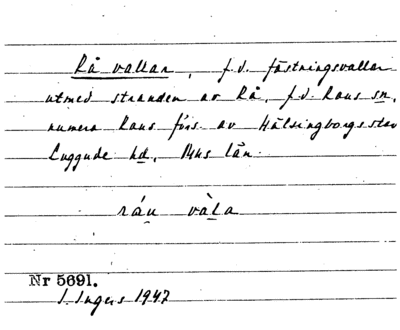 Rå vallar, f.d. fästningsvallar
utmed stranden av Rå, f.d. Raus sn,
numera Raus förs. av Hälsingborgs stad
Luggude hd, Mhs län.
ráu vàla
Nr 5691.
I. Ingers 1947